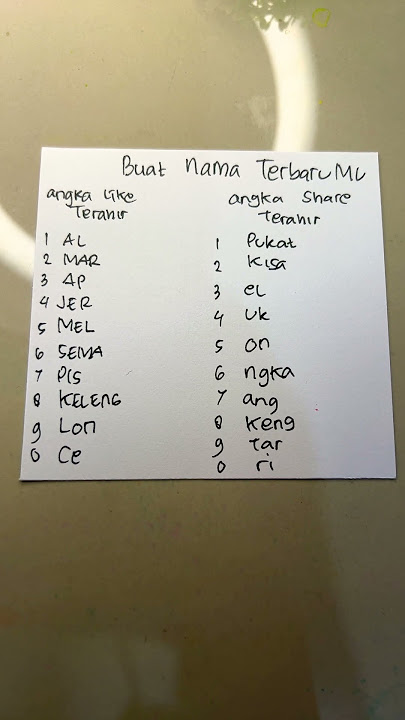 Buat nama TerbaruMu
angka Like
Terahir
1 AL
2 MAR
3 AP
4 JER
5 MEL
6 SEMA
7 PIS
8 KELENG
9 Lon
0 Ce
angka Share
Terahir
1 Pukat
2 Kisa
3 el
4 uk
5 on
6 ngka
7 ang
8 keng
9 tar
0 ri